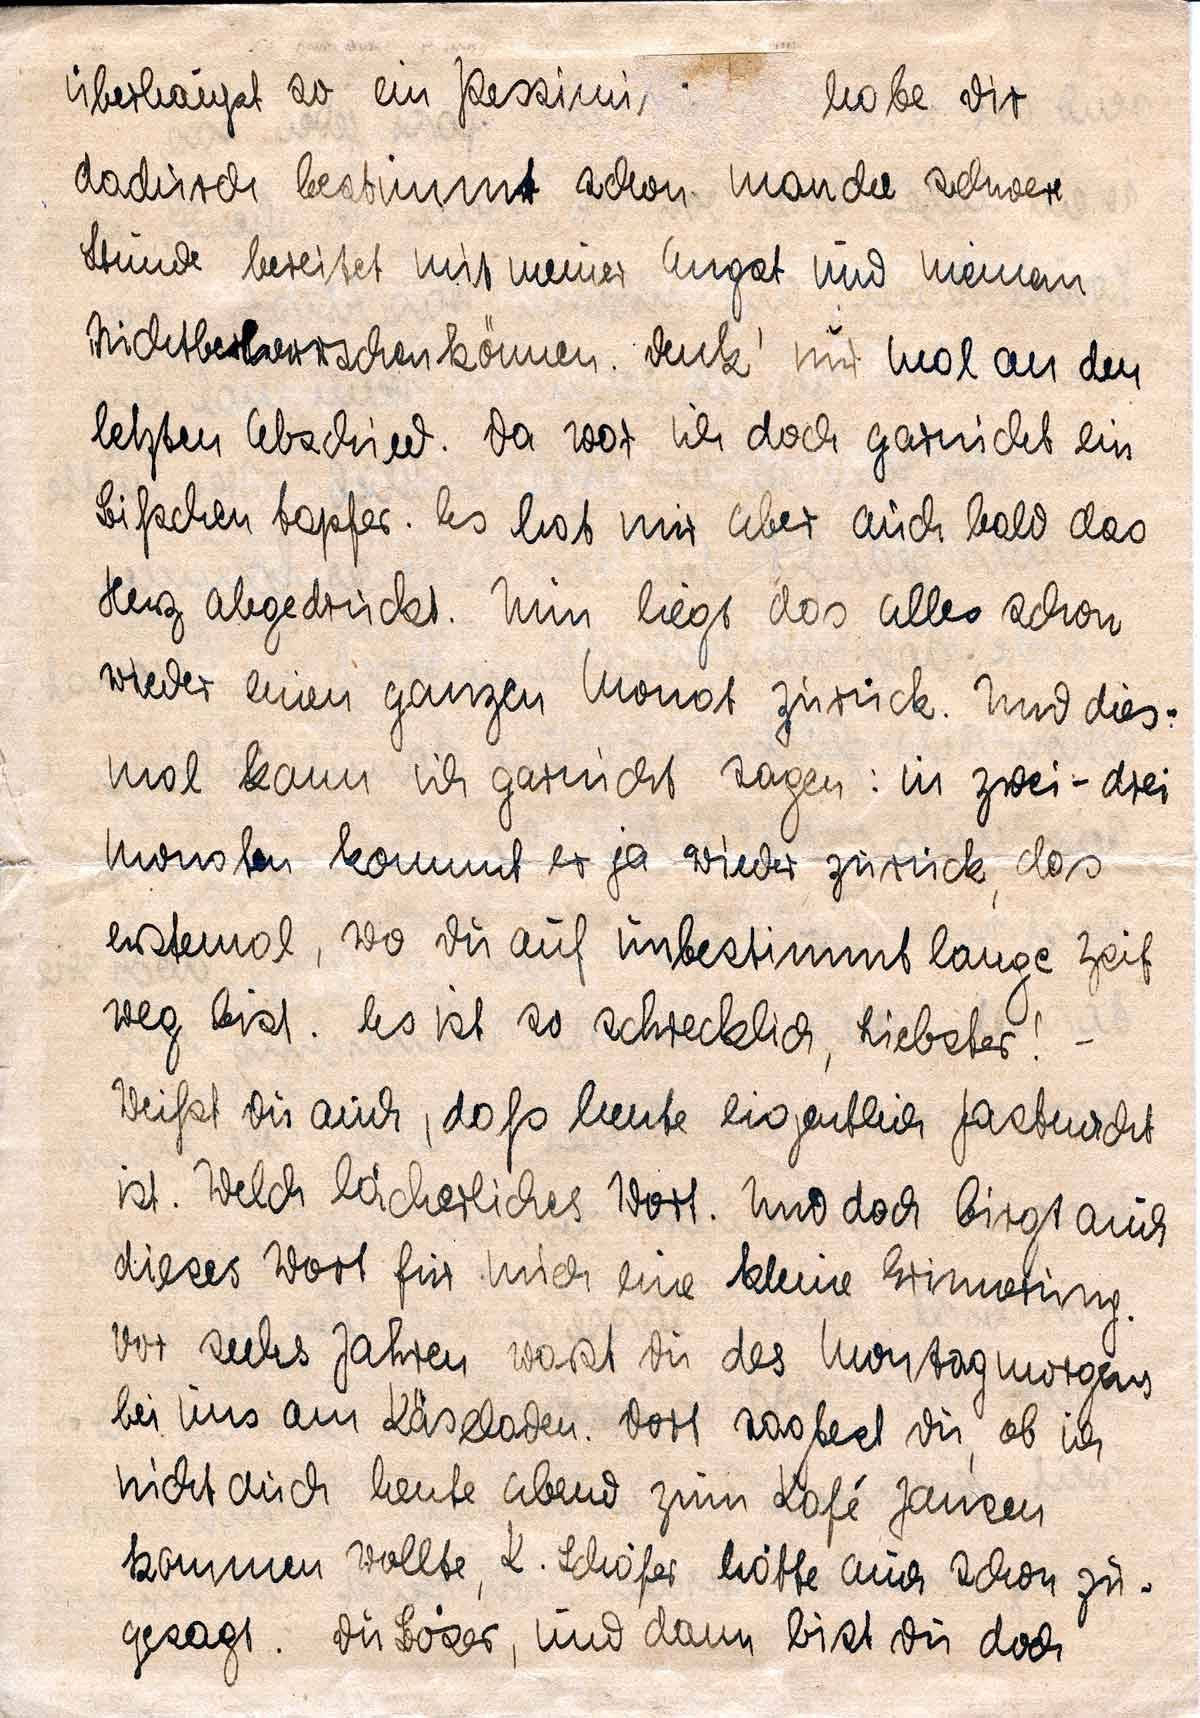 überhaupt so ein Pessimi habe Dir
dadurch bestimmt schon manche schwere
Stunde bereitet mit meiner Angst und meinem
Nichtbeherrschenkönnen. Denk' nur mal an den
letzten Abschied. Da war ich doch garnicht ein
bißchen tapfer. Es hat mir aber auch bald das
Herz abgedrückt. Nun liegt das alles schon
wieder einen ganzen Monat zurück. Und dies-
mal kann ich garnicht sagen: in zwei-drei
Monaten kommt er ja wieder zurück, das
erstemal, wo Du auf unbestimmt lange Zeit
weg bist. Es ist so schrecklich, Liebster! -
Weißt Du auch, daß heute eigentlich Fastnacht
ist. Welch lächerliches Wort. Und doch birgt auch
dieses Wort für mich eine kleine Erinnerung.
Vor sechs Jahren warst Du des Montagmorgens
bei uns am Käseladen. Dort sagtest Du, ob ich
nicht auch heute abend zum Kafé Jansen
kommen wollte, K. Schäfer hätte auch schon zu-
gesagt. Du Böser, und dann bist Du doch